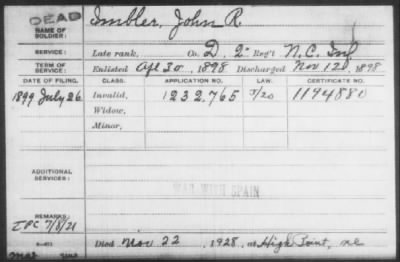 DEAD
NAME OF SOLDIER: Imbler, John R.
SERVICE: Late rank, Co. D, 2" Reg't N.C. Inf
TERM OF SERVICE: Enlisted Apl 30, 1898 Discharged Nov 12, 1898
DATE OF FILING. CLASS. APPLICATION NO. LAW. CERTIFICATE NO.
1899 July 26 Invalid, 1232.765 1194880
Widow,
Minor,
ADDITIONAL SERVICES:
WAR WITH SPAIN
REMARKS:
7/8/21
Died Nov 22, 1928, at High Point, NC